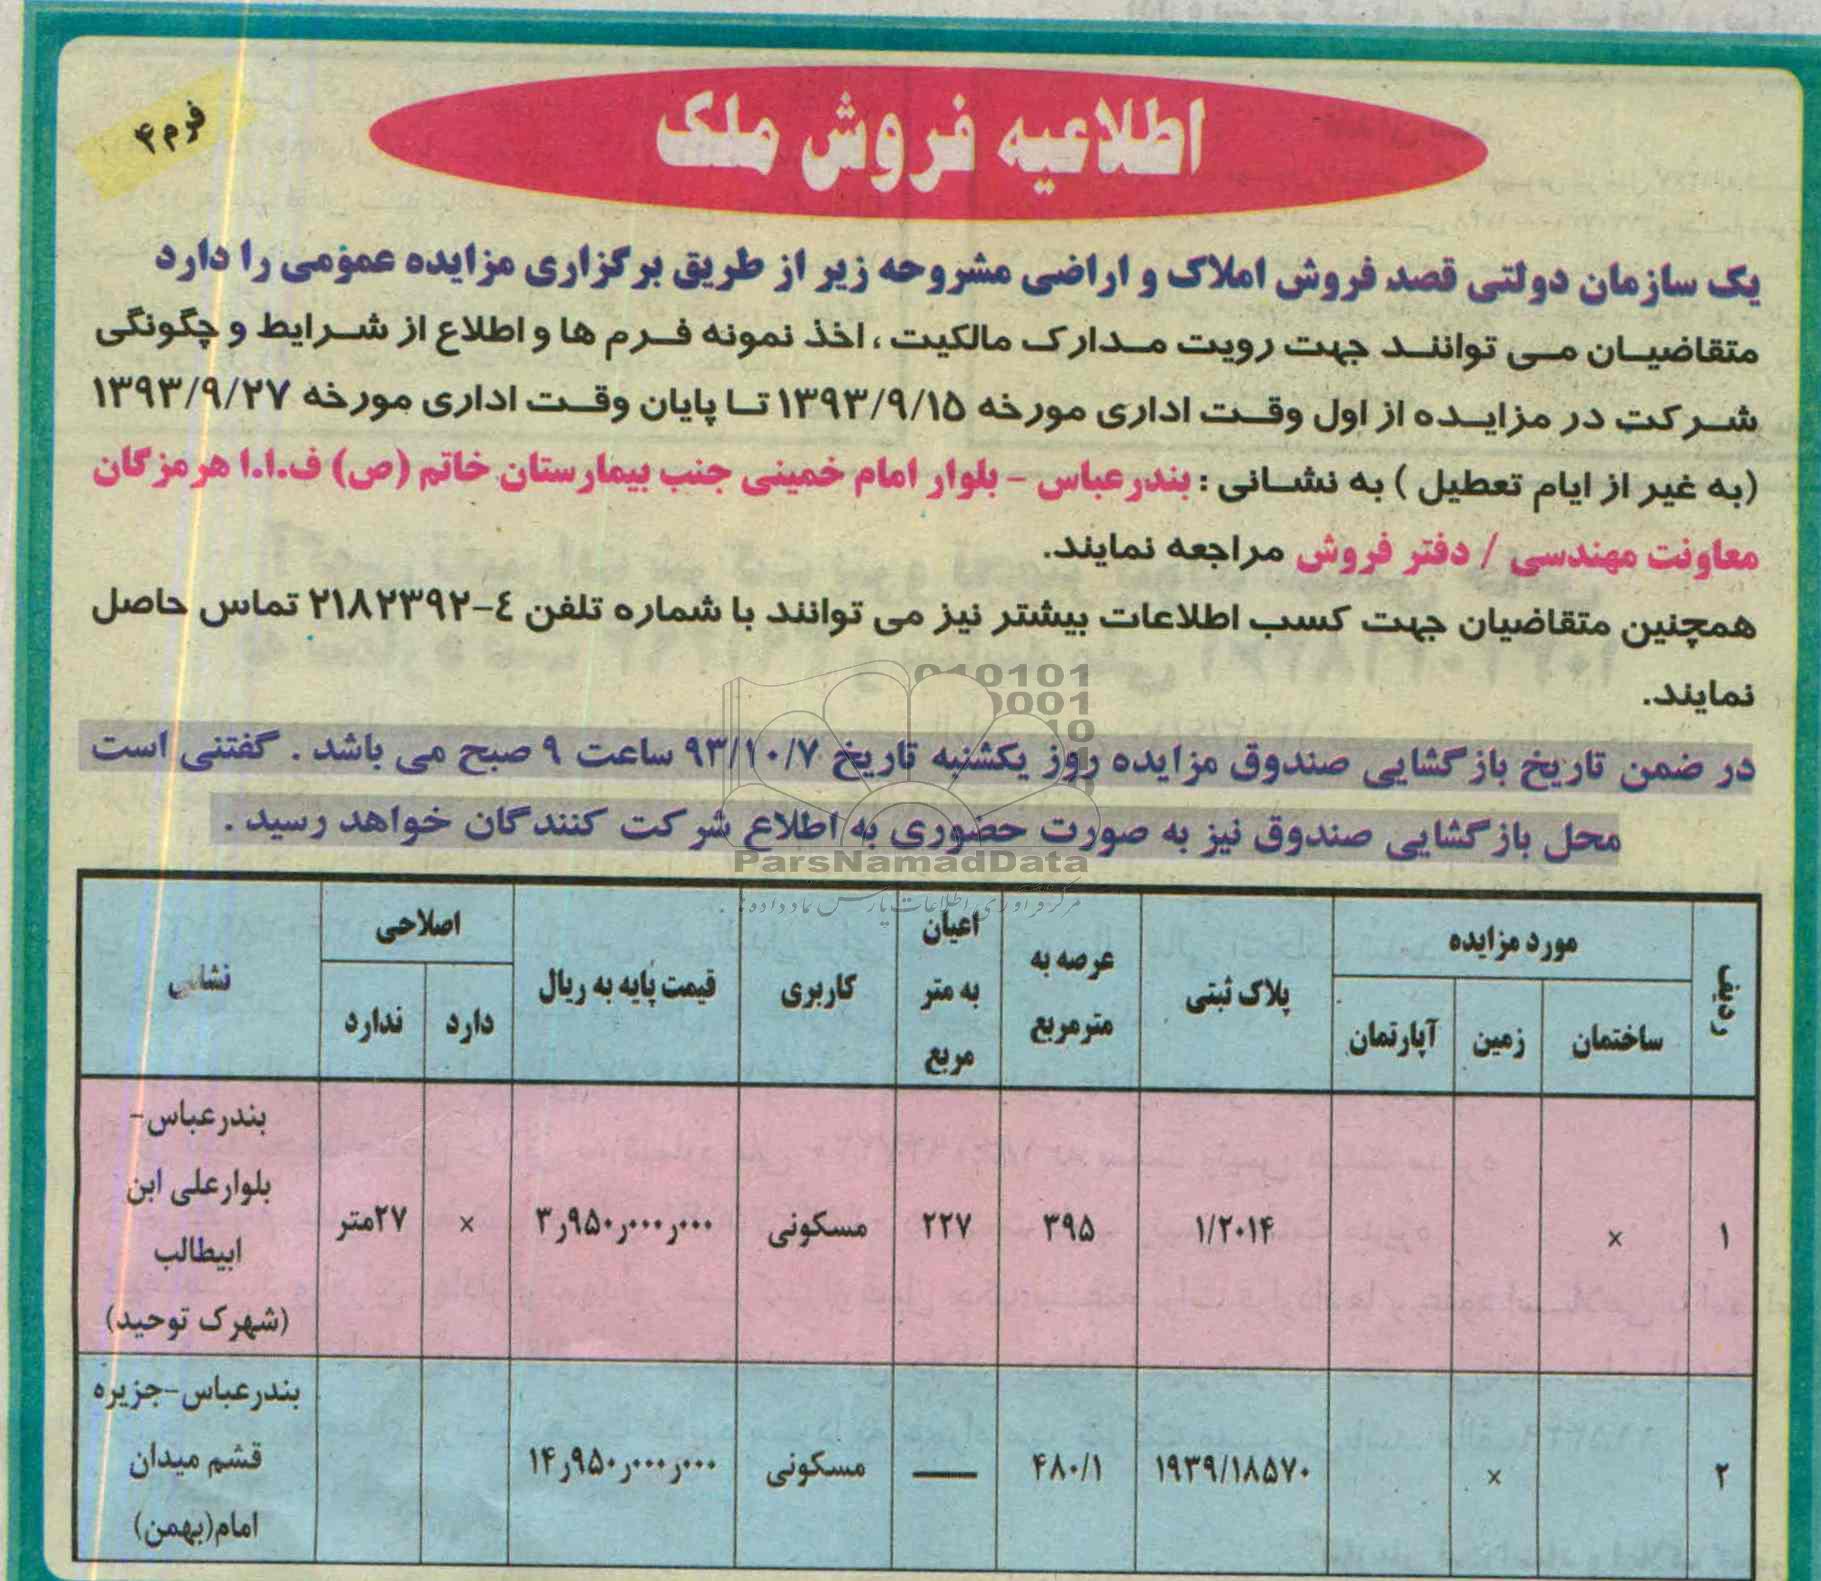 فرم ۴
اطلاعیه فروش ملک
یک سازمان دولتی قصد فروش املاک و اراضی مشروحه زیر از طریق برگزاری مزایده عمومی را دارد
متقاضیان می توانند جهت رویت مدارک مالکیت ، اخذ نمونه فرم ها و اطلاع از شرایط و چگونگی
شرکت در مزایده از اول وقت اداری مورخه ۱۳۹۳/۹/۱۵ تا پایان وقت اداری مورخه ۱۳۹۳/۹/۲۷
(به غیر از ایام تعطیل ) به نشانی : بندرعباس - بلوار امام خمینی جنب بیمارستان خاتم (ص) ف.ا.ا هرمزگان
معاونت مهندسی / دفتر فروش مراجعه نمایند.
همچنین متقاضیان جهت کسب اطلاعات بیشتر نیز می توانند با شماره تلفن ٤-۲۱۸۲۳۹۲ تماس حاصل
نمایند.
در ضمن تاریخ بازگشایی صندوق مزایده روز یکشنبه تاریخ ۹۳/۱۰/۷ ساعت ۹ صبح می باشد . گفتنی است
محل بازگشایی صندوق نیز به صورت حضوری به اطلاع شرکت کنندگان خواهد رسید .
010101
0001
10
ParsNamadData
مرکز فرآوری اطلاعات پارس نماد داده ها
ردیف
مورد مزایده
ساختمان
زمین
آپارتمان
پلاک ثبتی
عرصه به
مترمربع
اعیان
به متر
مربع
کاربری
قیمت پایه به ریال
اصلاحی
دارد
ندارد
نشانی
۱
×
۱/۲۰۱۴
۳۹۵
۲۲۷
مسکونی
۳ر۹۵۰ر۰۰۰ر۰۰۰
×
۲۷متر
بندرعباس-
بلوارعلی ابن
ابیطالب
(شهرک توحید)
۲
×
۱۹۳۹/۱۸۵۷۰
۴۸۰/۱
—
مسکونی
۱۴ر۹۵۰ر۰۰۰ر۰۰۰
بندرعباس-جزیره
قشم میدان
امام(بهمن)